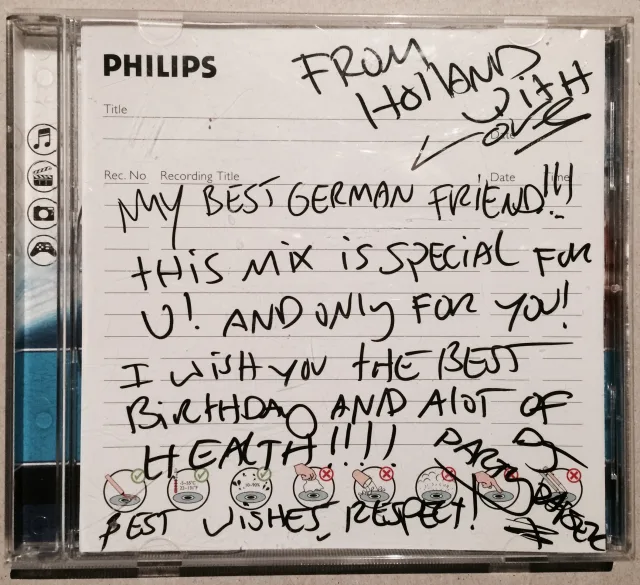 PHILIPS
FROM
HOllAND
WITH
LOVE
Title
Rec. No Recording Title Date Time
MY BEST GERMAN FRIEND!!!
tHiS MiX iS SPECiAL FOR
U! AND ONly FOR YOU!
I WiSH YOU tHE BEST
BiRtHDAy AND AlOT OF
HEALtH!!!!
BEST WISHES, RESPECt!